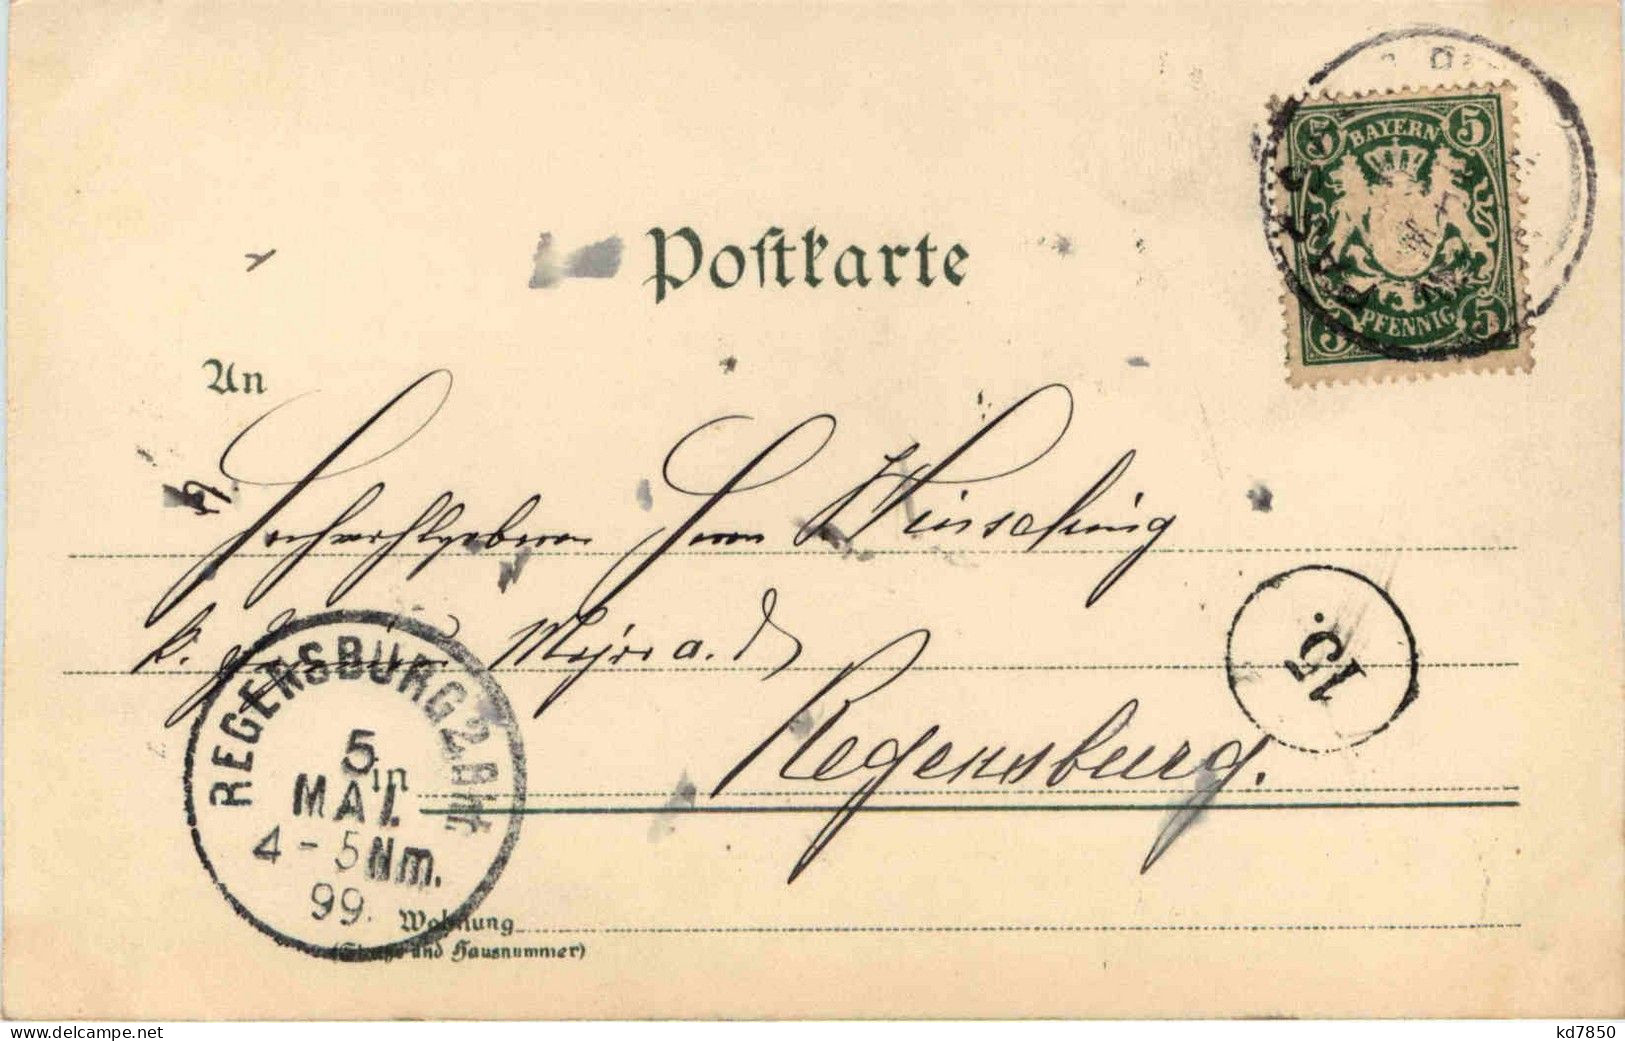 5 BAYERN 5
PFENNIG
5 5
PASS
Postkarte
An
Sr. Hochwohlgeboren Herrn Wünsching
k. Major a. D.
15.
REGENSBURG 2. Bhf.
5
MAI.
4-5 Nm.
99.
in Regensburg.
Wohnung
(Straße und Hausnummer)
kd7850